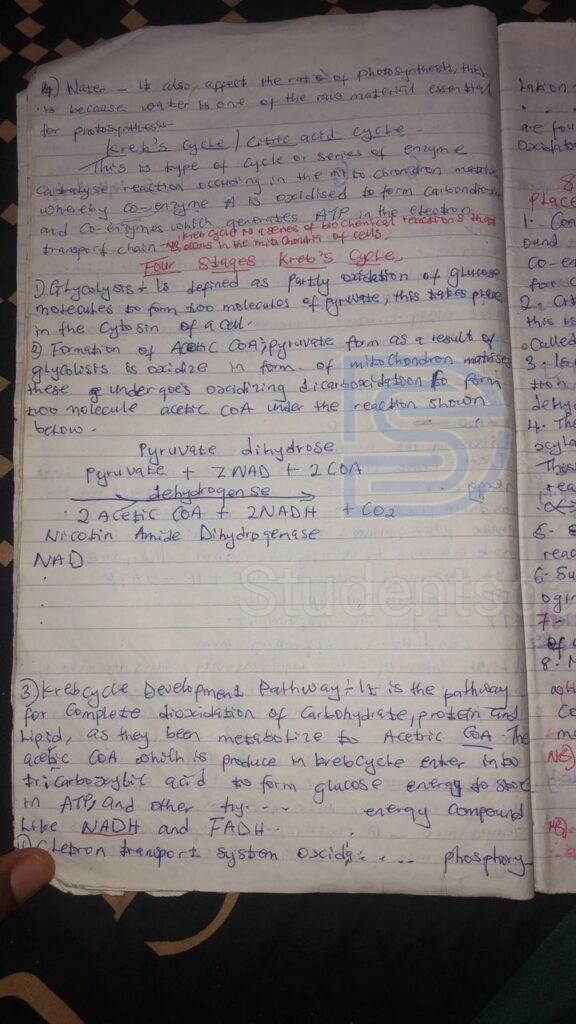 4) Water - It also, affect the rate of photosynthesis, this
is because water is one of the raw material essential
for photosynthesis.
Kreb's Cycle / Citric acid Cycle.
This is type of cycle or series of enzyme
Catalyse reaction occuring in the mitochondrion matrix
whereby Co-enzyme A is oxidised to form carbondioxide
and Co-enzymes which generates ATP in the electron
transport chain
Kreb cycle is a series of biochemical reactions that
occurs in the mitochondria of cells.
Four Stages Kreb's Cycle.
1) Glycolysis:- Is defined as Partly oxidation of glucose
molecules to form two molecules of pyruvate, this takes place
in the Cytosin of a cell.
2) Formation of Acetic COA; pyruvate form as a result of
glycolists is oxidize in form of mitochondron matrixes
these undergoes oxidizing dicarboxidation to form
two molecule acetic COA under the reaction shown
below.
Pyruvate dihydrose
Pyruvate + 2NAD + 2COA
dehydrogense
2 Acetic COA + 2NADH + CO2
Nicotin Amide Dihydrogenase
NAD
Students
3) Krebcycle Development Pathway:- It is the pathway
for Complete dioxidation of Carbohydrate, protein and
Lipid, as they been metabolize to Acetric COA. The
acetic COA which is produce in krebcycle enter into
tricarboxylic acid to form glucose energy to
in ATP, and other try.... energy compound
Like NADH and FADH.
transport system oxidi.... phosphory-
lation
are fou
Place
1. Con
ound
Co-en
for
this is
Called
dehy
4. The
rea
reac
6. Su
7-
8.